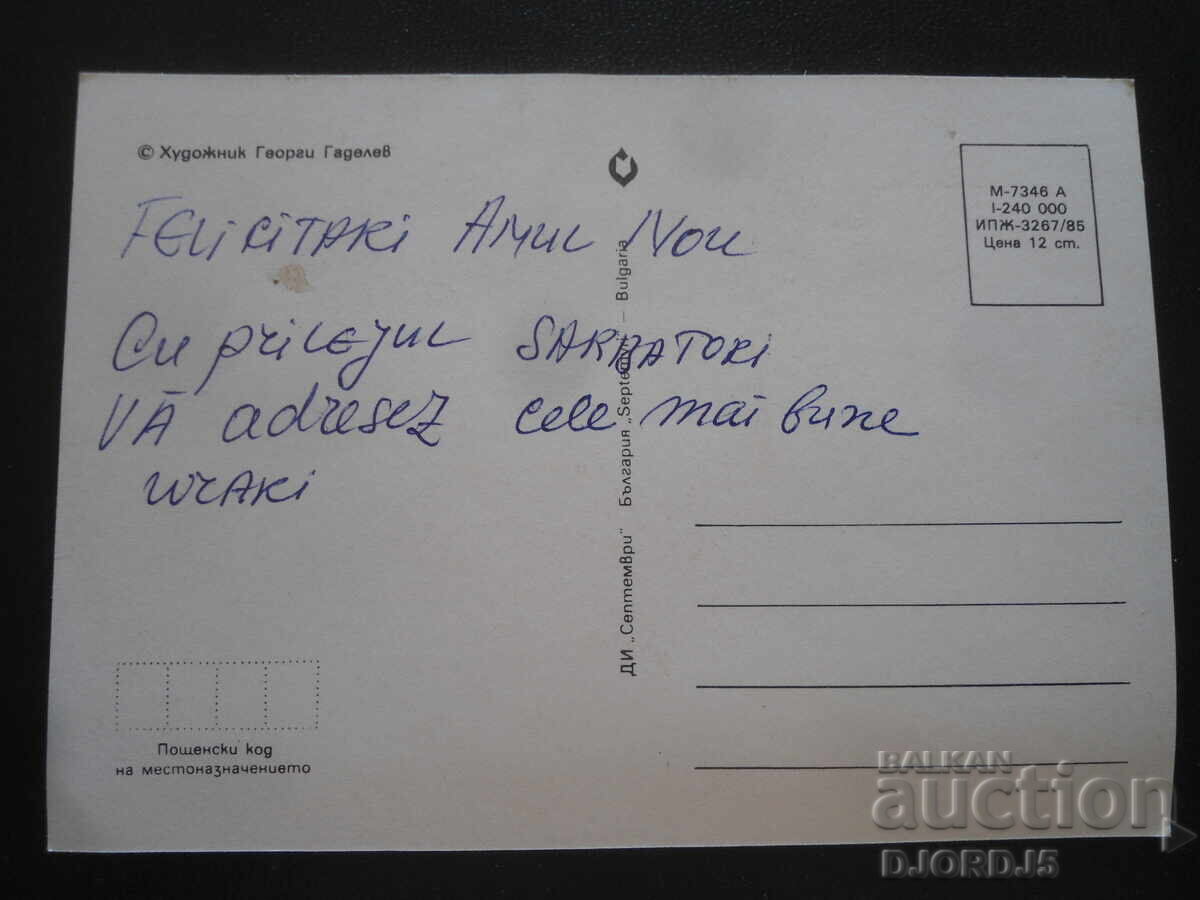 © Художник Георги Гаделев
М-7346 А
I-240 000
ИПЖ-3267/85
Цена 12 ст.
FEliCITARi ANUL NOU
Cu prilejul SARBATORi
VĂ adresez cele mai bune
urari
ДИ „Септември" България „Septemvri" – Bulgaria
Пощенски код
на местоназначението
BALKAN
auction
DJORDJ5